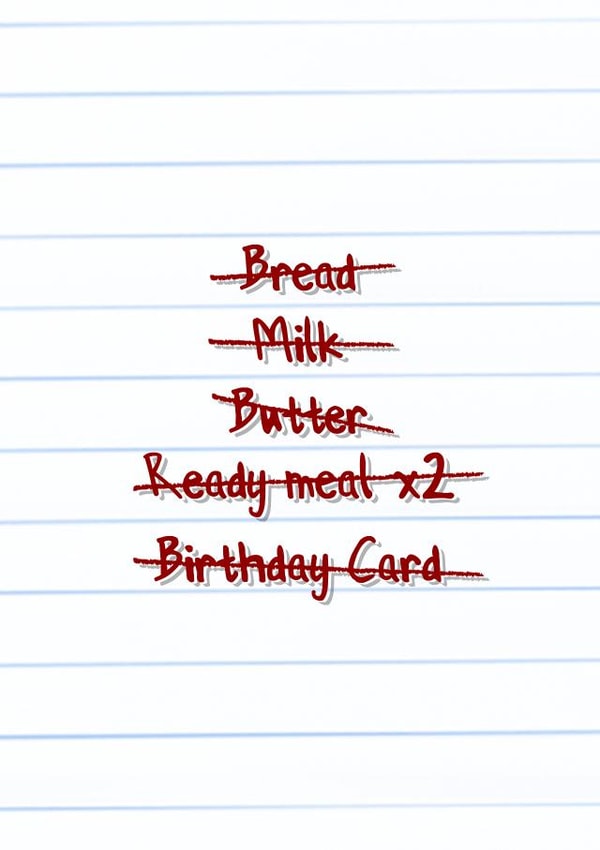 Bread
Milk
Butter
Ready meal x2
Birthday Card